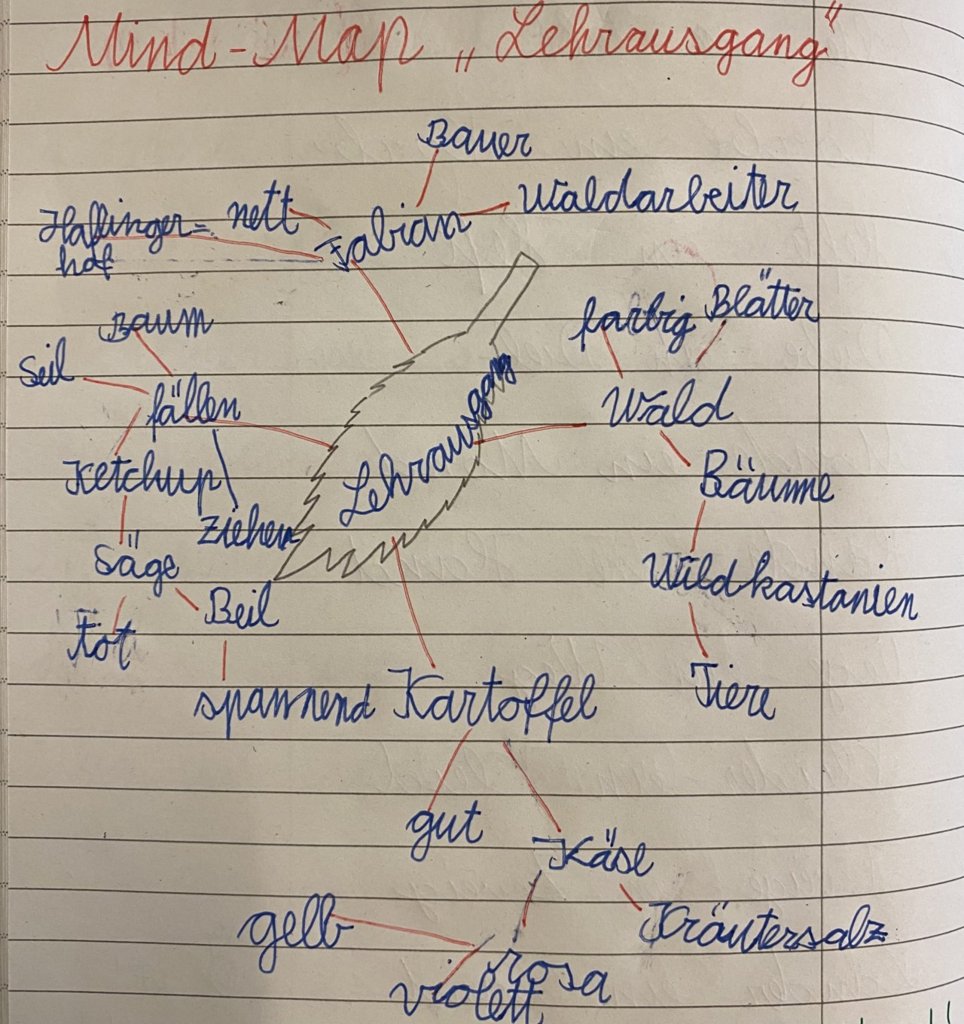 Mind-Map „Lehrausgang"
Bauer
Waldarbeiter
nett
Haflinger=
hof
Fabian
Baum
Seil
fällen
Ketchup
ziehen
Säge
Tot
Beil
spannend
Lehrausgang
farbig
Blätter
Wald
Bäume
Wildkastanien
Tiere
Kartoffel
gut
Käse
Kräutersalz
gelb
rosa
violett